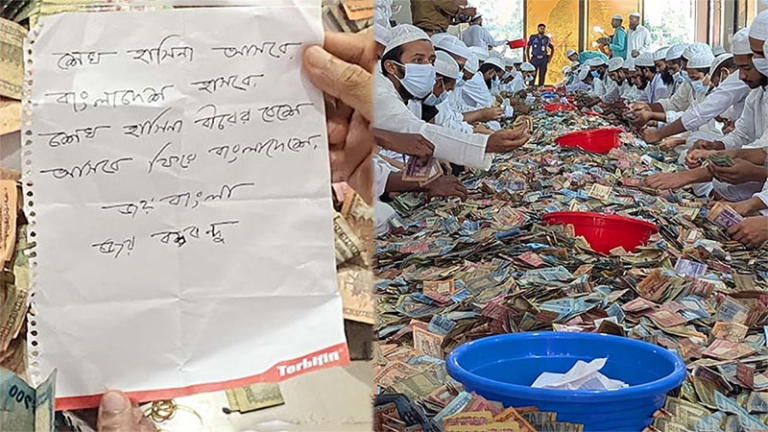 শেখ হাসিনা আসবে,
বাংলাদেশ হাসবে,
শেখ হাসিনা বীরের বেশে
আসবে ফিরে বাংলাদেশে,
জয় বাংলা
জয় বঙ্গবন্ধু
Torbifin